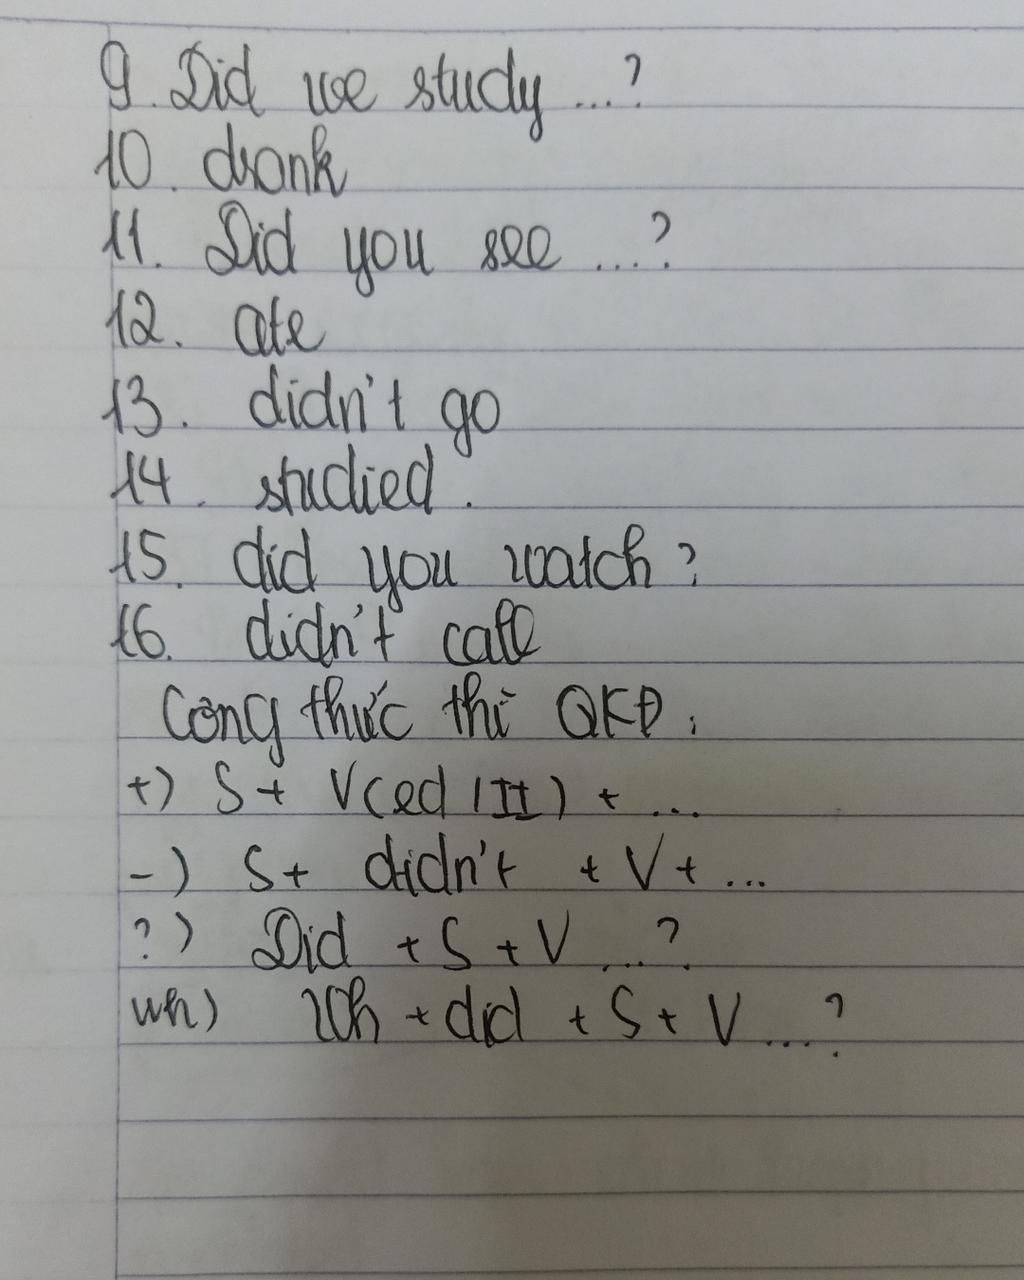 9. Did we study ...?
10. drank
11. Did you see ....?
12. ate
13. didn't go
14. studied.
15. did you watch?
16. didn't call
Công thức thì QKĐ:
+) S + V(ed/II) + ...
-) S + didn't + V + ...
?) Did + S + V ...?
wh) Wh + did + S + V ....?